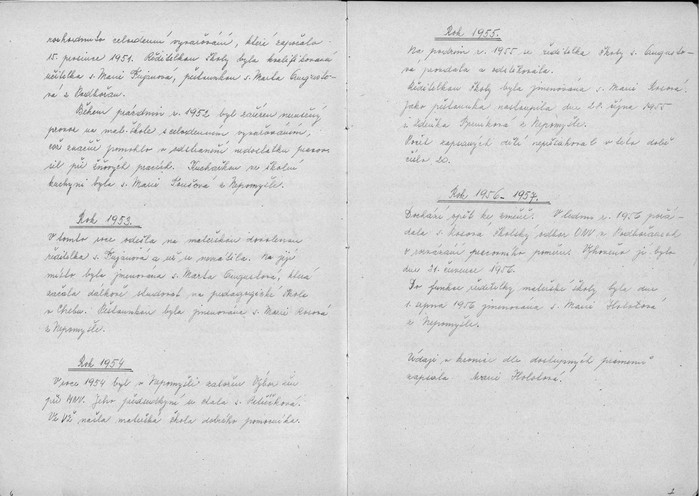 rozhodnuto celodenní vyvařování, které započalo
15. prosince 1951. Ředitelkou školy byla kvalifikovaná
učitelka s. Marie Kujanová, pěstounkou s. Marta Augustová
z Podbořan.
Během prázdnin r. 1952 byl zahájen nerušený
provoz na mat. škole s celodenním vyvařováním,
což značně pomohlo v odstranění nedostatku pracov.
sil při žňových pracích. Kuchařkou ve školní
kuchyni byla s. Marie z Nepomyšle.
Rok 1953.
V tomto roce odešla na mateřskou dovolenou
ředitelka s. Kujanová a už se nevrátila. Na její
místo byla jmenována s. Marta Augustová, která
začala dálkově studovat na pedagogické škole
v Chebu. Pěstounkou byla jmenována s. Marie Kosová
z Nepomyšle.
Rok 1954
V roce 1954 byl v Nepomyšli založen Výbor žen
při MNV. Jeho předsedkyní se stala s.
Ve VŽ našla mateřská škola dobrého pomocníka.
Rok 1955.
Na podzim r. 1955 se ředitelka školy s. Augustová
provdala a odstěhovala.
Ředitelkou školy byla jmenována s. Marie Kosová.
Jako pěstounka nastoupila dne 21. října 1955
s. Zdeňka z Nepomyšle.
Počet zapsaných dětí nepřekračoval v této době
číslo 20.
Rok 1956 - 1957.
Dochází opět ke změně. V lednu r. 1956 požádala
s. Kosová školský odbor ONV v Podbořanech
o rozvázání pracovního poměru. Vyhověno jí bylo
dne 31. července 1956.
Do funkce ředitelky mateřské školy byla dne
1. srpna 1956 jmenována s. Marie Holotová
z Nepomyšle.
Údaje v kronice dle dostupných pramenů
zapsala Marie Holotová.